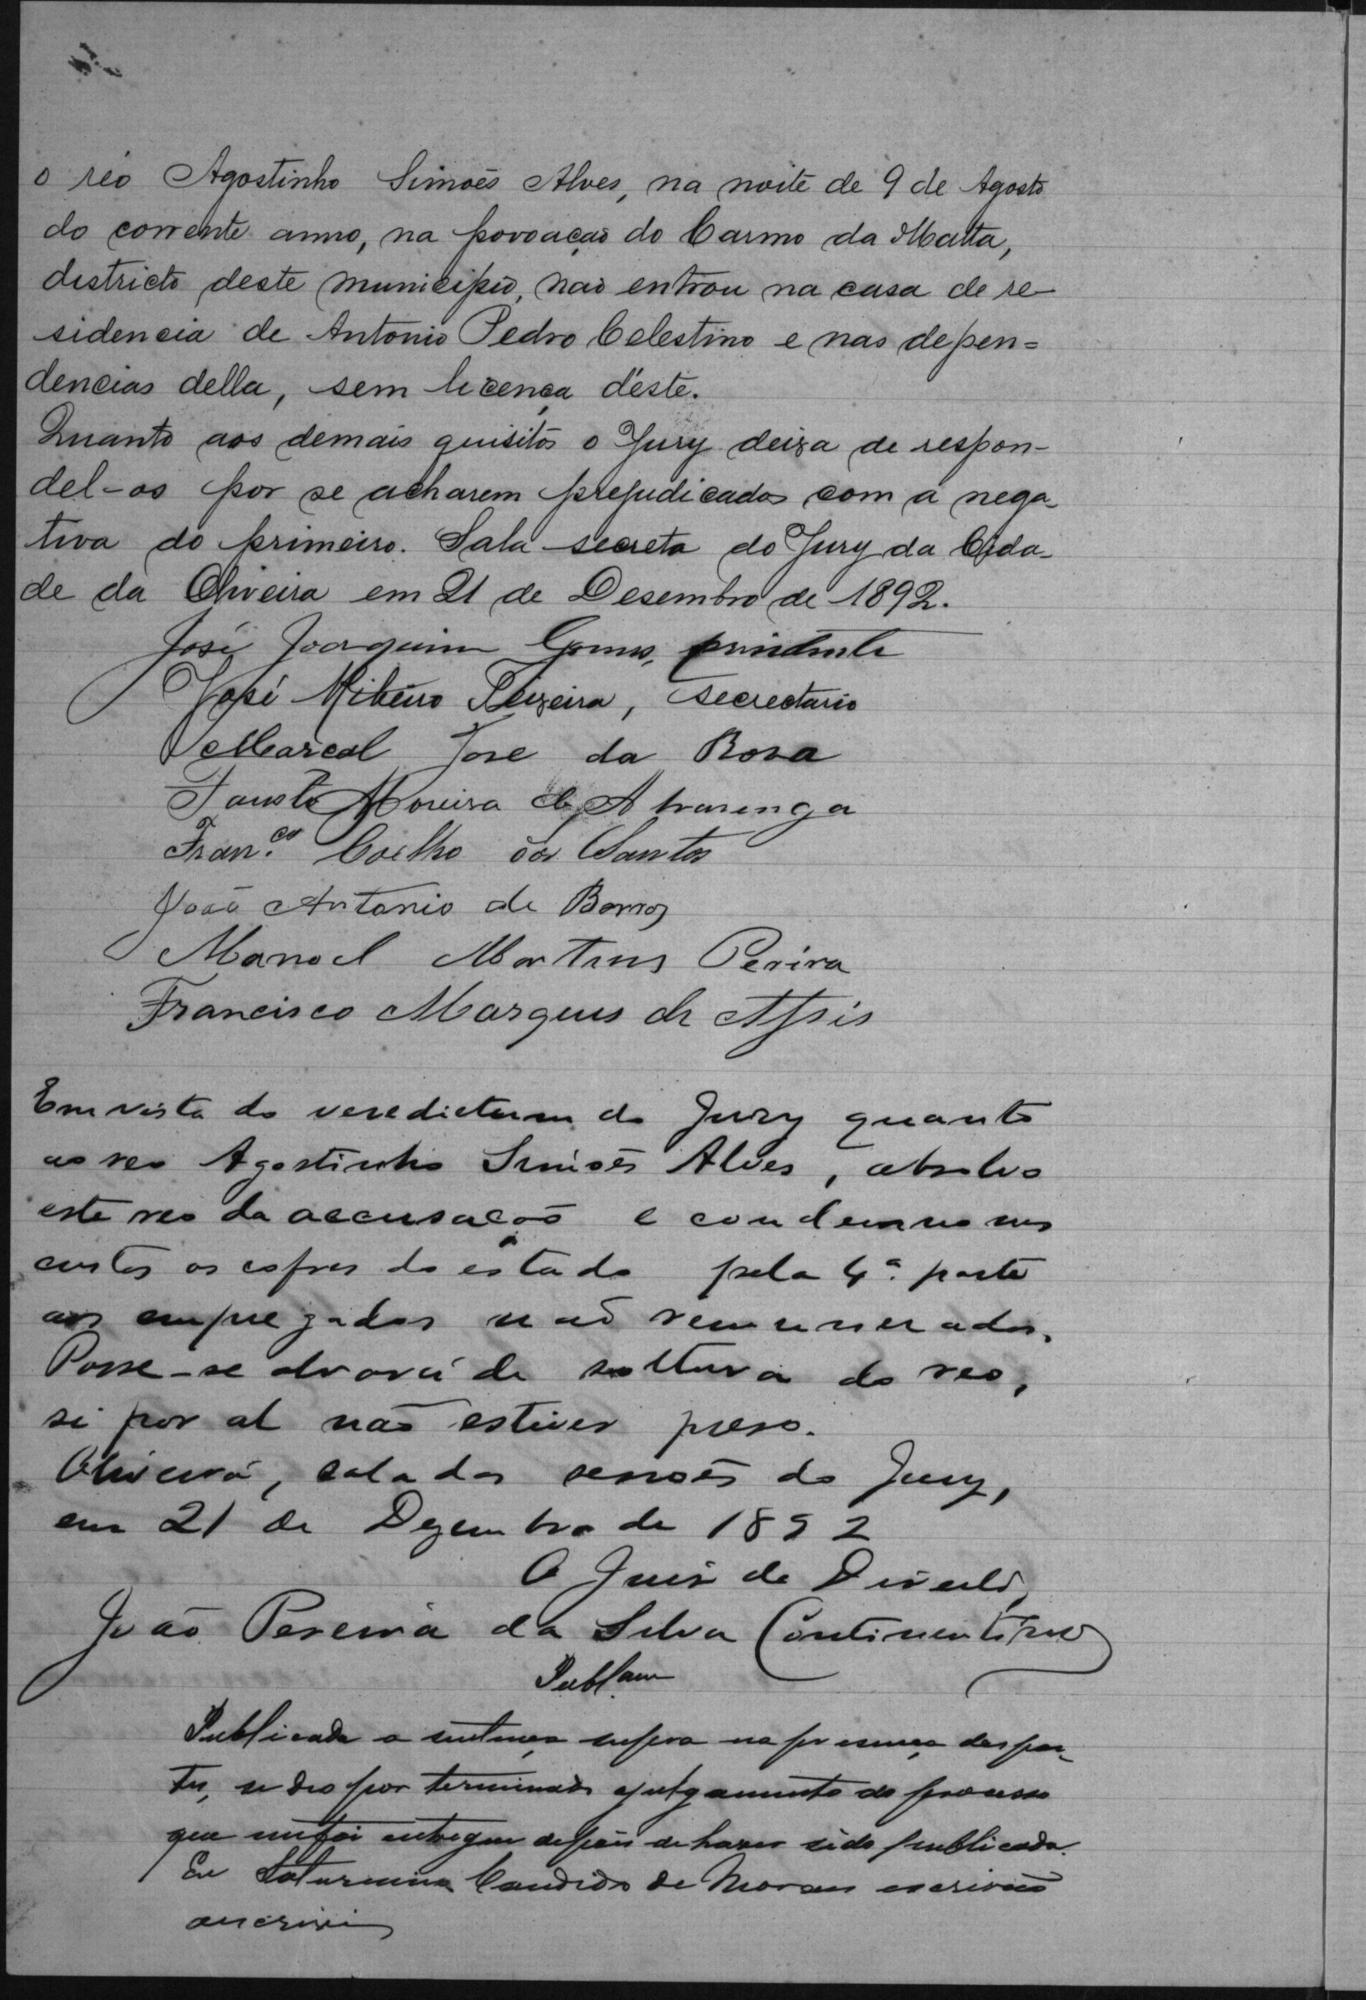 o réo Agostinho Simões Alves, na noite de 9 de Agosto
do corrente anno, na povoação do Carmo da Matta,
districto deste municipio, não entrou na casa de re-
sidencia de Antonio Pedro Celestino e nas depen=
dencias della, sem licença d'éste.
Quanto aos demais quisitos o Jury deixa de respon-
del-os por se acharem prejudicados com a nega-
tiva do primeiro. Sala secreta do Jury da Cida-
de da Oliveira em 21 de Desembro de 1892.
José Joaquim Gomes, presidente
José Ribeiro Teixeira, secretario
Marcal Jose da Rosa
Fausto Moreira de Alvarenga
Fran.co Coelho dos Santos
João Antonio de Barros
Manoel Martins Pereira
Francisco Marques de Assis
Em vista do veredictum do Jury quanto
ao reo Agostinho Simões Alves, absolvo
este reo da accusação e condemno nas
custas os cofres do estado pela 4ª parte
aos empregados não remunerados.
Passe-se alvará de soltura do reo,
si por al não estiver preso.
Oliveira, sala das sessões do Jury,
em 21 de Dezembro de 1892
O Juiz de Direito,
João Pereira da Silva Continentino
Publam
Publicada a sentença supra na presença das par-
tes, se deo por terminado o julgamento do processo
que me foi entregue depois de haver sido publicada.
Eu Saturnino Candido de Moraes escrivão
o escrivi